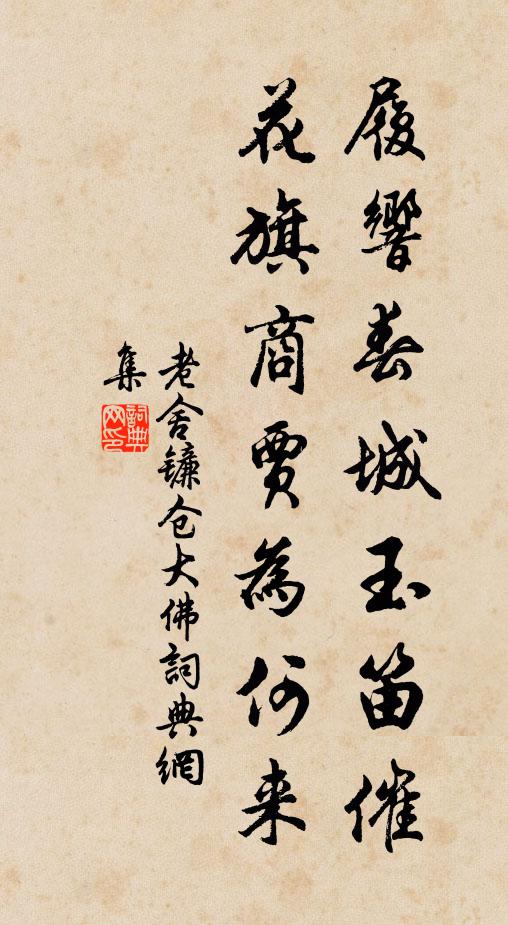 履響春城玉笛催
花旗商賈為何来
老舍镰仓大佛詞典網
集
詞典网印